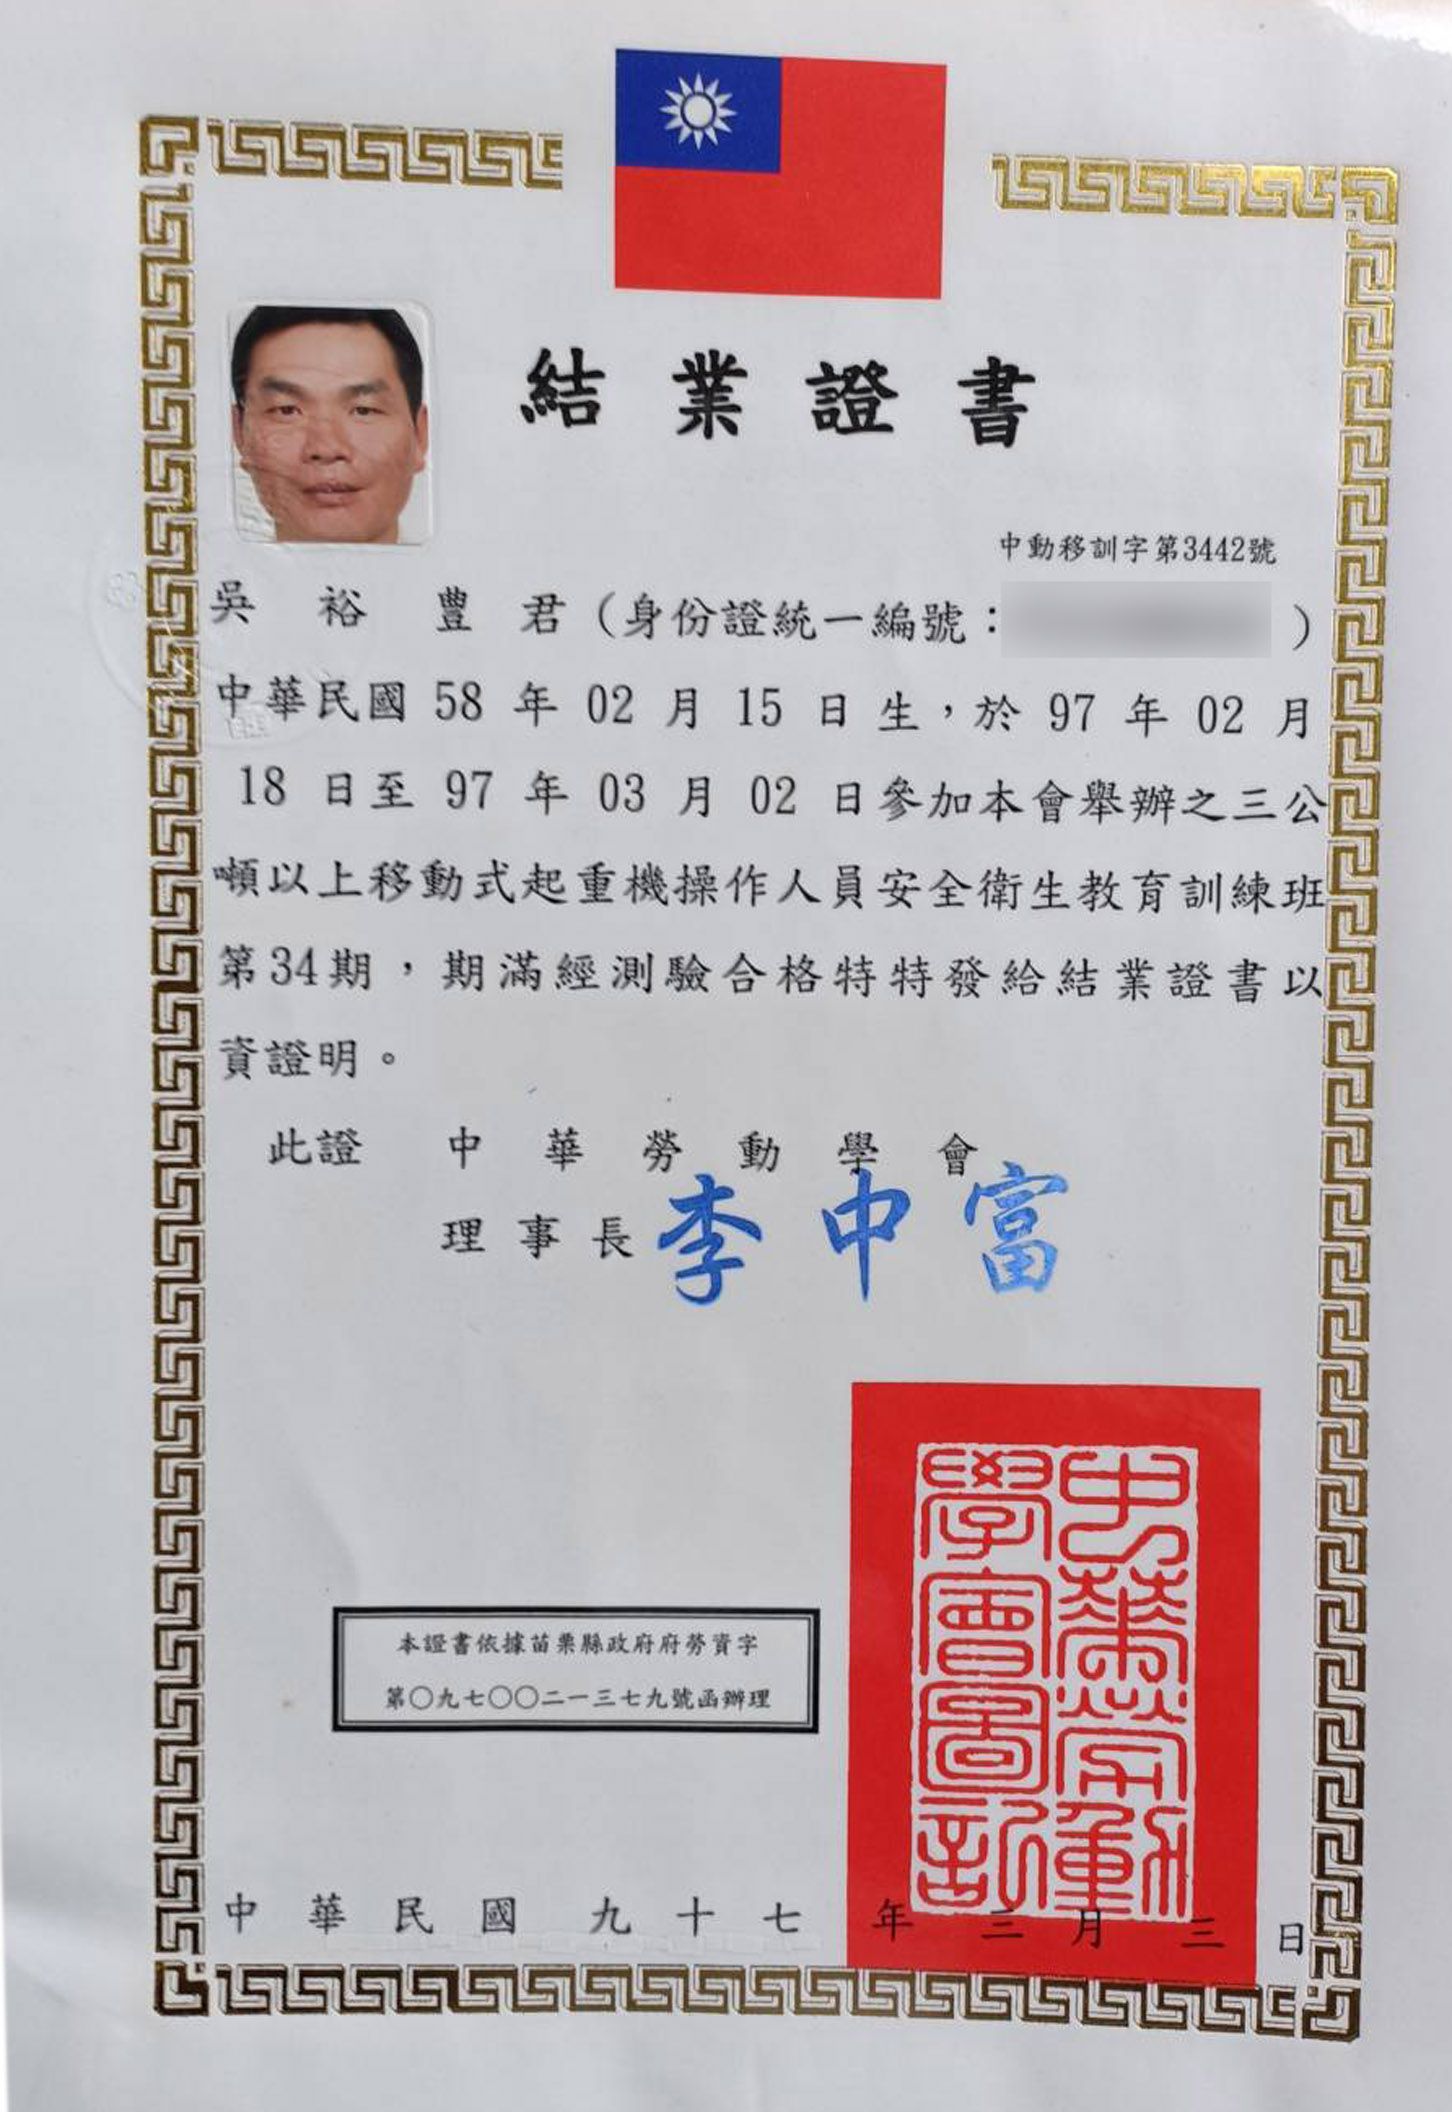 結業證書
中動移訓字第3442號
吳裕豐君（身份證統一編號：）
中華民國 58 年 02 月 15 日生，於 97 年 02 月
18 日至 97 年 03 月 02 日參加本會舉辦之三公
噸以上移動式起重機操作人員安全衛生教育訓練班
第34期，期滿經測驗合格特特發給結業證書以
資證明。
此證 中華勞動學會
理事長 李中富
中華勞動
學會圖記
本證書依據苗栗縣政府府勞資字
第〇九七〇〇二一三七九號函辦理
中華民國九十七年三月三日